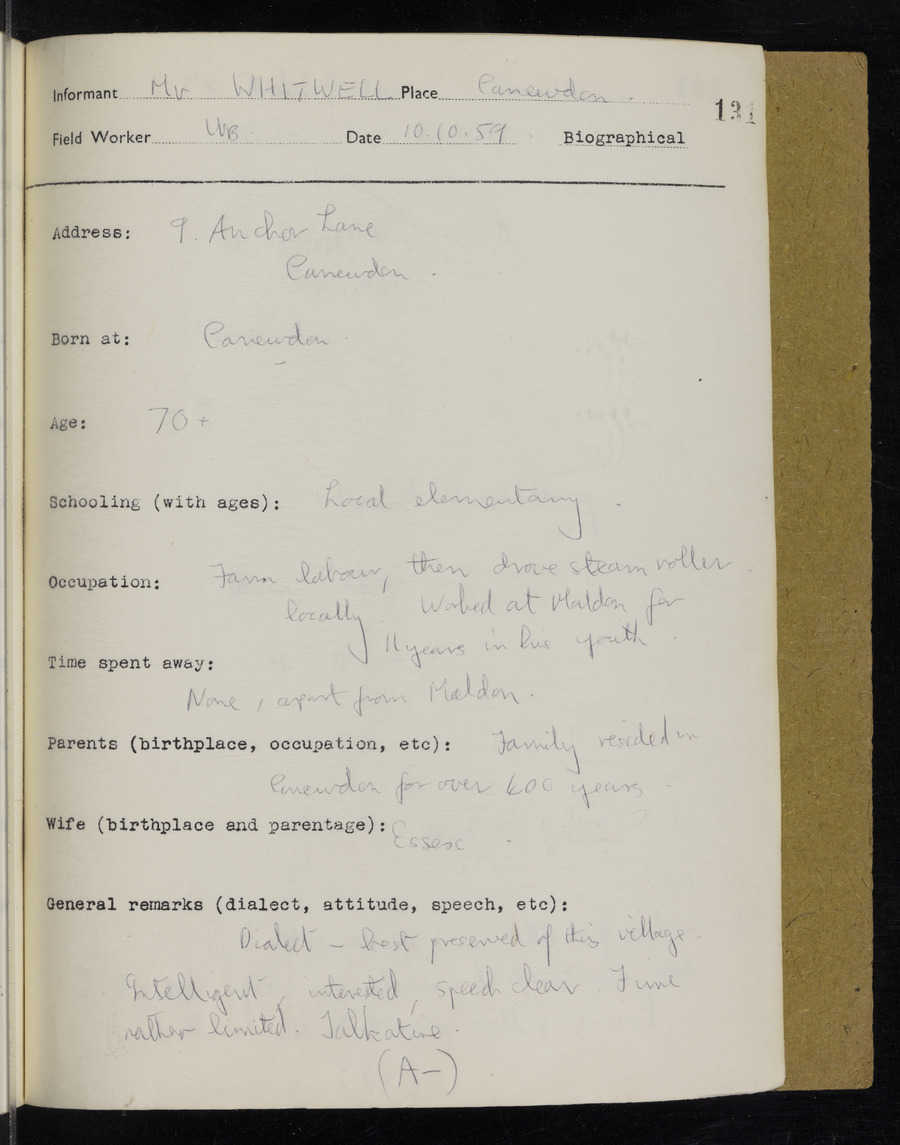 Informant Mr WHITWELL Place Canewdon.
131
Field Worker Date 10.10.59 Biographical
Address: 9. Anchor Lane
Canewdon.
Born at: Canewdon
Age: 70+
Schooling (with ages): Local elementary.
Occupation: Farm labour, then drove steam roller.
locally. Worked at Maldon for
11 years in his youth.
Time spent away:
None, apart from Maldon.
Parents (birthplace, occupation, etc): Family resided in
Canewdon for over 600 years
Wife (birthplace and parentage): Essex.
General remarks (dialect, attitude, speech, etc):
Dialect - best preserved of this village.
Intelligent, interested, speech clear. Time
rather limited. Talkative.
(A-)